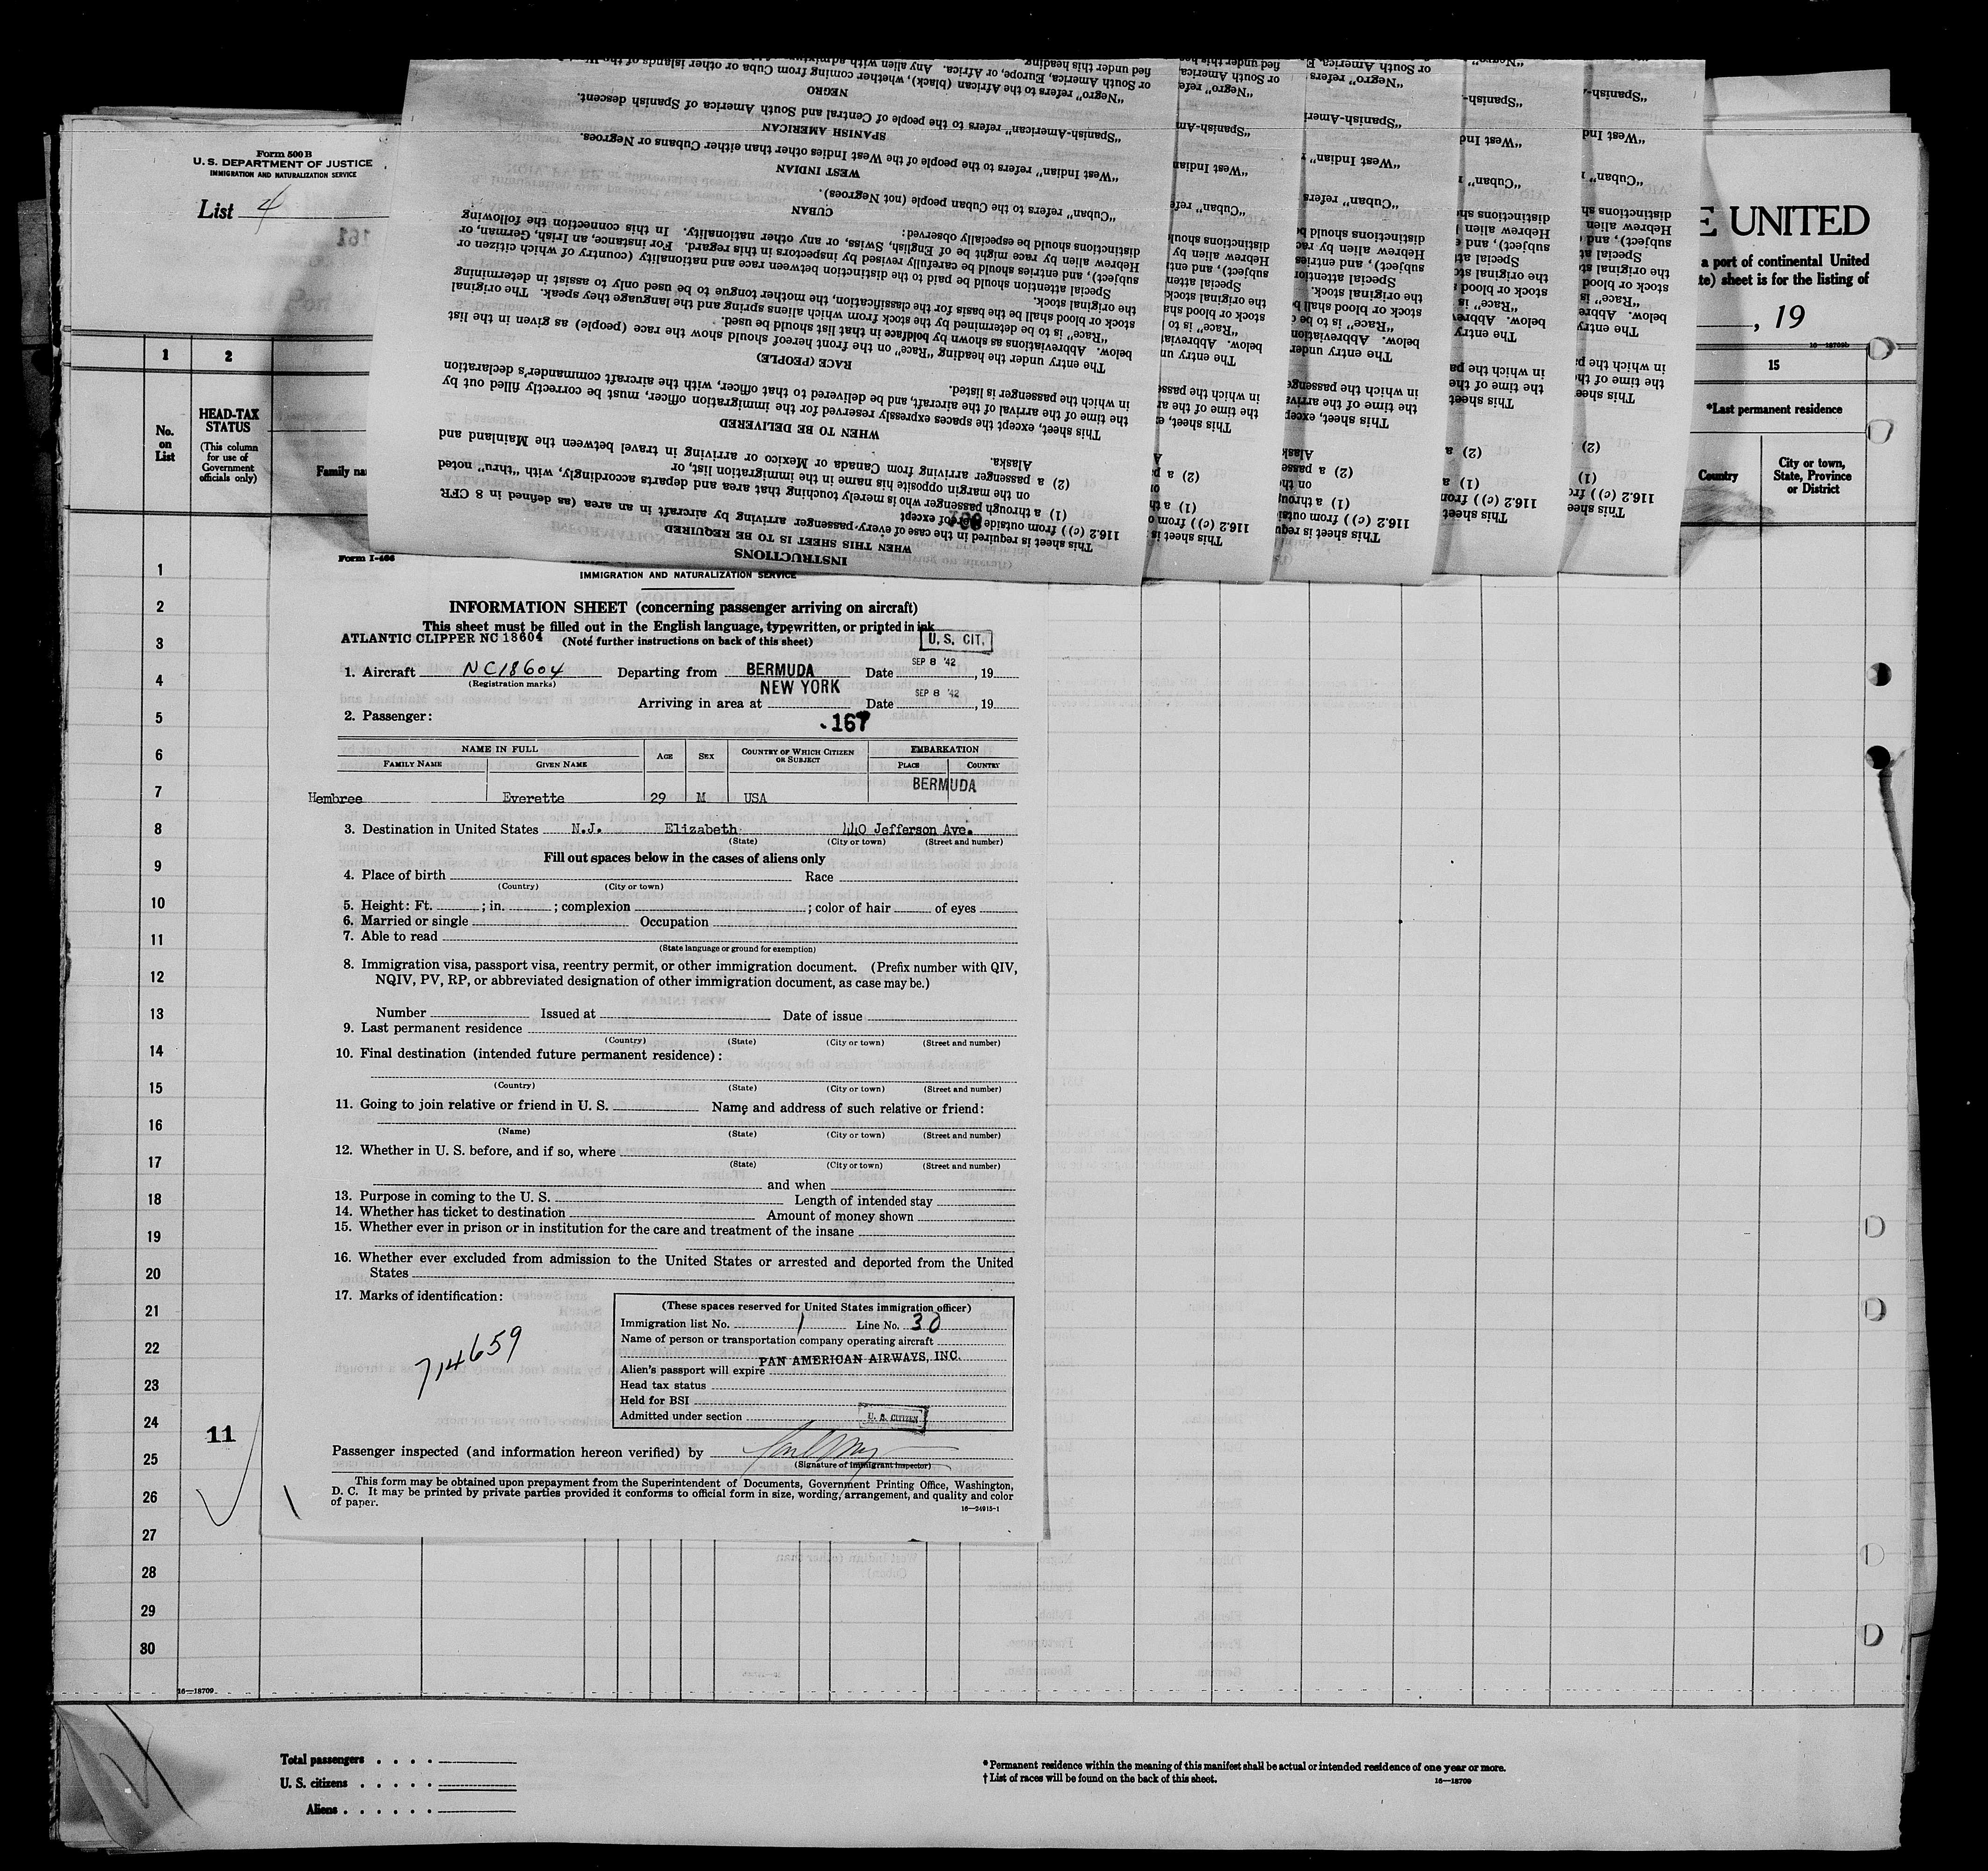 Form 500 B
U. S. DEPARTMENT OF JUSTICE
IMMIGRATION AND NATURALIZATION SERVICE
List 4
E UNITED
a port of continental United
te) sheet is for the listing of
, 19
16—18709b
1
2
15
No. on List
HEAD-TAX STATUS
(This column for use of Government officials only)
Family na
*Last permanent residence
Country
City or town, State, Province or District
INSTRUCTIONS
WHEN THIS SHEET IS TO BE REQUIRED
This sheet is required in the case of every passenger arriving by aircraft in an area (as defined in 8 CFR
116.2 (c)) from outside thereof except
(1) a through passenger who is merely touching that area and departs accordingly, with "thru" noted
on the margin opposite his name in the immigration list, or
(2) a passenger arriving from Canada or Mexico or arriving in travel between the Mainland and
Alaska.
WHEN TO BE DELIVERED
This sheet, except the spaces expressly reserved for the immigration officer, must be correctly filled out by
the time of the arrival of the aircraft, and be delivered to that officer, with the aircraft commander's declaration
in which the passenger is listed.
RACE (PEOPLE)
The entry under the heading "Race" on the front hereof should show the race (people) as given in the list
below. Abbreviations as shown by boldface in that list should be used.
"Race" is to be determined by the stock from which aliens spring and the language they speak. The original
stock or blood shall be the basis for the classification, the mother tongue to be used only to assist in determining
the original stock.
Special attention should be paid to the distinction between race and nationality (country of which citizen or
subject), and entries should be carefully revised by inspectors in this regard. For instance, an Irish, German, or
Hebrew alien by race might be of English, Swiss, or any other nationality. In this connection the following
distinctions should be especially observed:
CUBAN
"Cuban" refers to the Cuban people (not Negroes).
WEST INDIAN
"West Indian" refers to the people of the West Indies other than either Cubans or Negroes.
SPANISH AMERICAN
"Spanish-American" refers to the people of Central and South America of Spanish descent.
NEGRO
"Negro" refers to the African (black), whether coming from Cuba or other islands of the
or South America, Europe, or Africa. Any alien with admixture
fied under this heading.
Form I-466
IMMIGRATION AND NATURALIZATION SERVICE
INFORMATION SHEET (concerning passenger arriving on aircraft)
This sheet must be filled out in the English language, typewritten, or printed in ink
ATLANTIC CLIPPER NC 18604 (Note further instructions on back of this sheet)
U. S. CIT.
1. Aircraft NC18604 Departing from BERMUDA Date SEP 8 '42, 19
(Registration marks)
Arriving in area at NEW YORK Date SEP 8 '42, 19
2. Passenger:
167
NAME IN FULL
FAMILY NAME
GIVEN NAME
AGE
SEX
COUNTRY OF WHICH CITIZEN OR SUBJECT
EMBARKATION
PLACE
COUNTRY
BERMUDA
Hembree Everette 29 M USA
3. Destination in United States N.J. Elizabeth 440 Jefferson Ave.
(State) (City or town) (Street and number)
Fill out spaces below in the cases of aliens only
4. Place of birth Race
(Country) (City or town)
5. Height: Ft. ; in. ; complexion ; color of hair of eyes
6. Married or single Occupation
7. Able to read
(State language or ground for exemption)
8. Immigration visa, passport visa, reentry permit, or other immigration document. (Prefix number with QIV,
NQIV, PV, RP, or abbreviated designation of other immigration document, as case may be.)
Number Issued at Date of issue
9. Last permanent residence
(Country) (State) (City or town) (Street and number)
10. Final destination (intended future permanent residence):
(Country) (State) (City or town) (Street and number)
11. Going to join relative or friend in U. S. Name and address of such relative or friend:
(Name) (State) (City or town) (Street and number)
12. Whether in U. S. before, and if so, where
(State) (City or town) (Street and number)
and when
13. Purpose in coming to the U. S. Length of intended stay
14. Whether has ticket to destination Amount of money shown
15. Whether ever in prison or in institution for the care and treatment of the insane
16. Whether ever excluded from admission to the United States or arrested and deported from the United
States
17. Marks of identification:
714659
(These spaces reserved for United States immigration officer)
Immigration list No. 1 Line No. 30
Name of person or transportation company operating aircraft
PAN AMERICAN AIRWAYS, INC.
Alien's passport will expire
Head tax status
Held for BSI
Admitted under section U. S. CITIZEN
Passenger inspected (and information hereon verified) by
(Signature of Immigrant Inspector)
This form may be obtained upon prepayment from the Superintendent of Documents, Government Printing Office, Washington,
D. C. It may be printed by private parties provided it conforms to official form in size, wording, arrangement, and quality and color
of paper.
16—24915-1
1
2
3
4
5
6
7
8
9
10
11
12
13
14
15
16
17
18
19
20
21
22
23
24
11
25
26
27
28
29
30
16—18709
Total passengers
U. S. citizens
Aliens
* Permanent residence within the meaning of this manifest shall be actual or intended residence of one year or more.
† List of races will be found on the back of this sheet.
16—18709